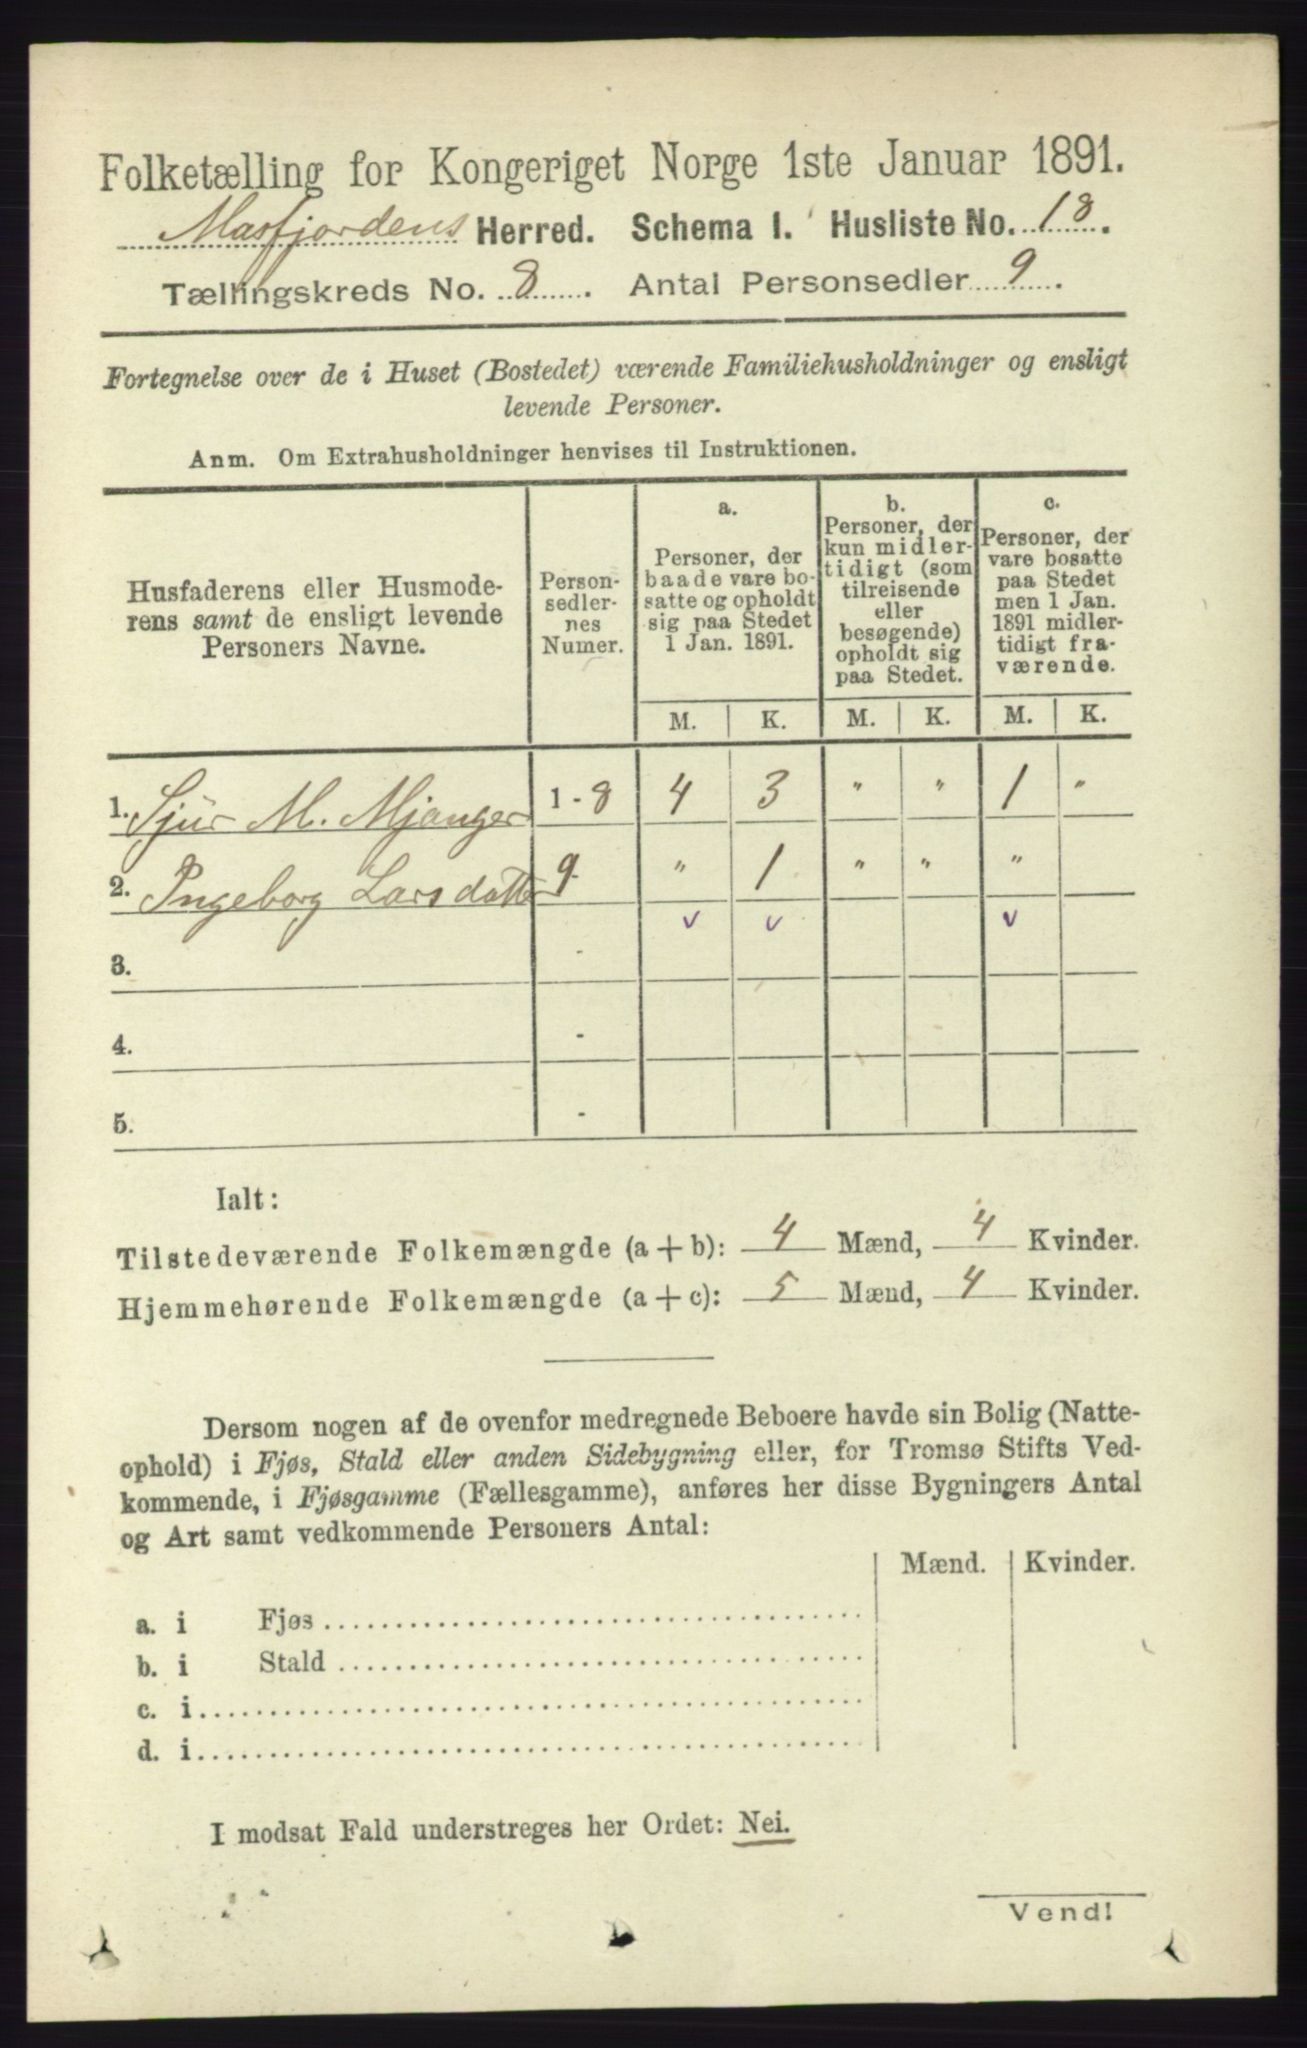 Folketælling for Kongeriget Norge 1ste Januar 1891.
Masfjordens Herred. Schema I. Husliste No. 18.
Tællingskreds No. 8. Antal Personsedler 9.
Fortegnelse over de i Huset (Bostedet) værende Familiehusholdninger og ensligt
levende Personer.
Anm. Om Extrahusholdninger henvises til Instruktionen.
Husfaderens eller Husmode-
rens samt de ensligt levende
Personers Navne.
Person-
sedler-
nes
Numer.
a.
Personer, der
baade vare bo-
satte og opholdt
sig paa Stedet
1 Jan. 1891.
b.
Personer, der
kun midler-
tidigt (som
tilreisende
eller
besøgende)
opholdt sig
paa Stedet.
c.
Personer, der
vare bosatte
paa Stedet
men 1 Jan.
1891 midler-
tidigt fra-
værende.
M. K. M. K. M. K.
1. Sjur M. Mjanger 1 - 8 4 3 " " 1 "
2. Ingeborg Larsdatter 9 - " 1 " " "
v v v
3. -
4. -
5. -
Ialt:
Tilstedeværende Folkemængde (a + b): 4 Mænd, 4 Kvinder.
Hjemmehørende Folkemængde (a + c): 5 Mænd, 4 Kvinder.
Dersom nogen af de ovenfor medregnede Beboere havde sin Bolig (Natte-
ophold) i Fjøs, Stald eller anden Sidebygning eller, for Tromsø Stifts Ved-
kommende, i Fjøsgamme (Fællesgamme), anføres her disse Bygningers Antal
og Art samt vedkommende Personers Antal:
Mænd. Kvinder.
a. i Fjøs
b. i Stald
c. i
d. i
I modsat Fald understreges her Ordet: Nei.
Vend!